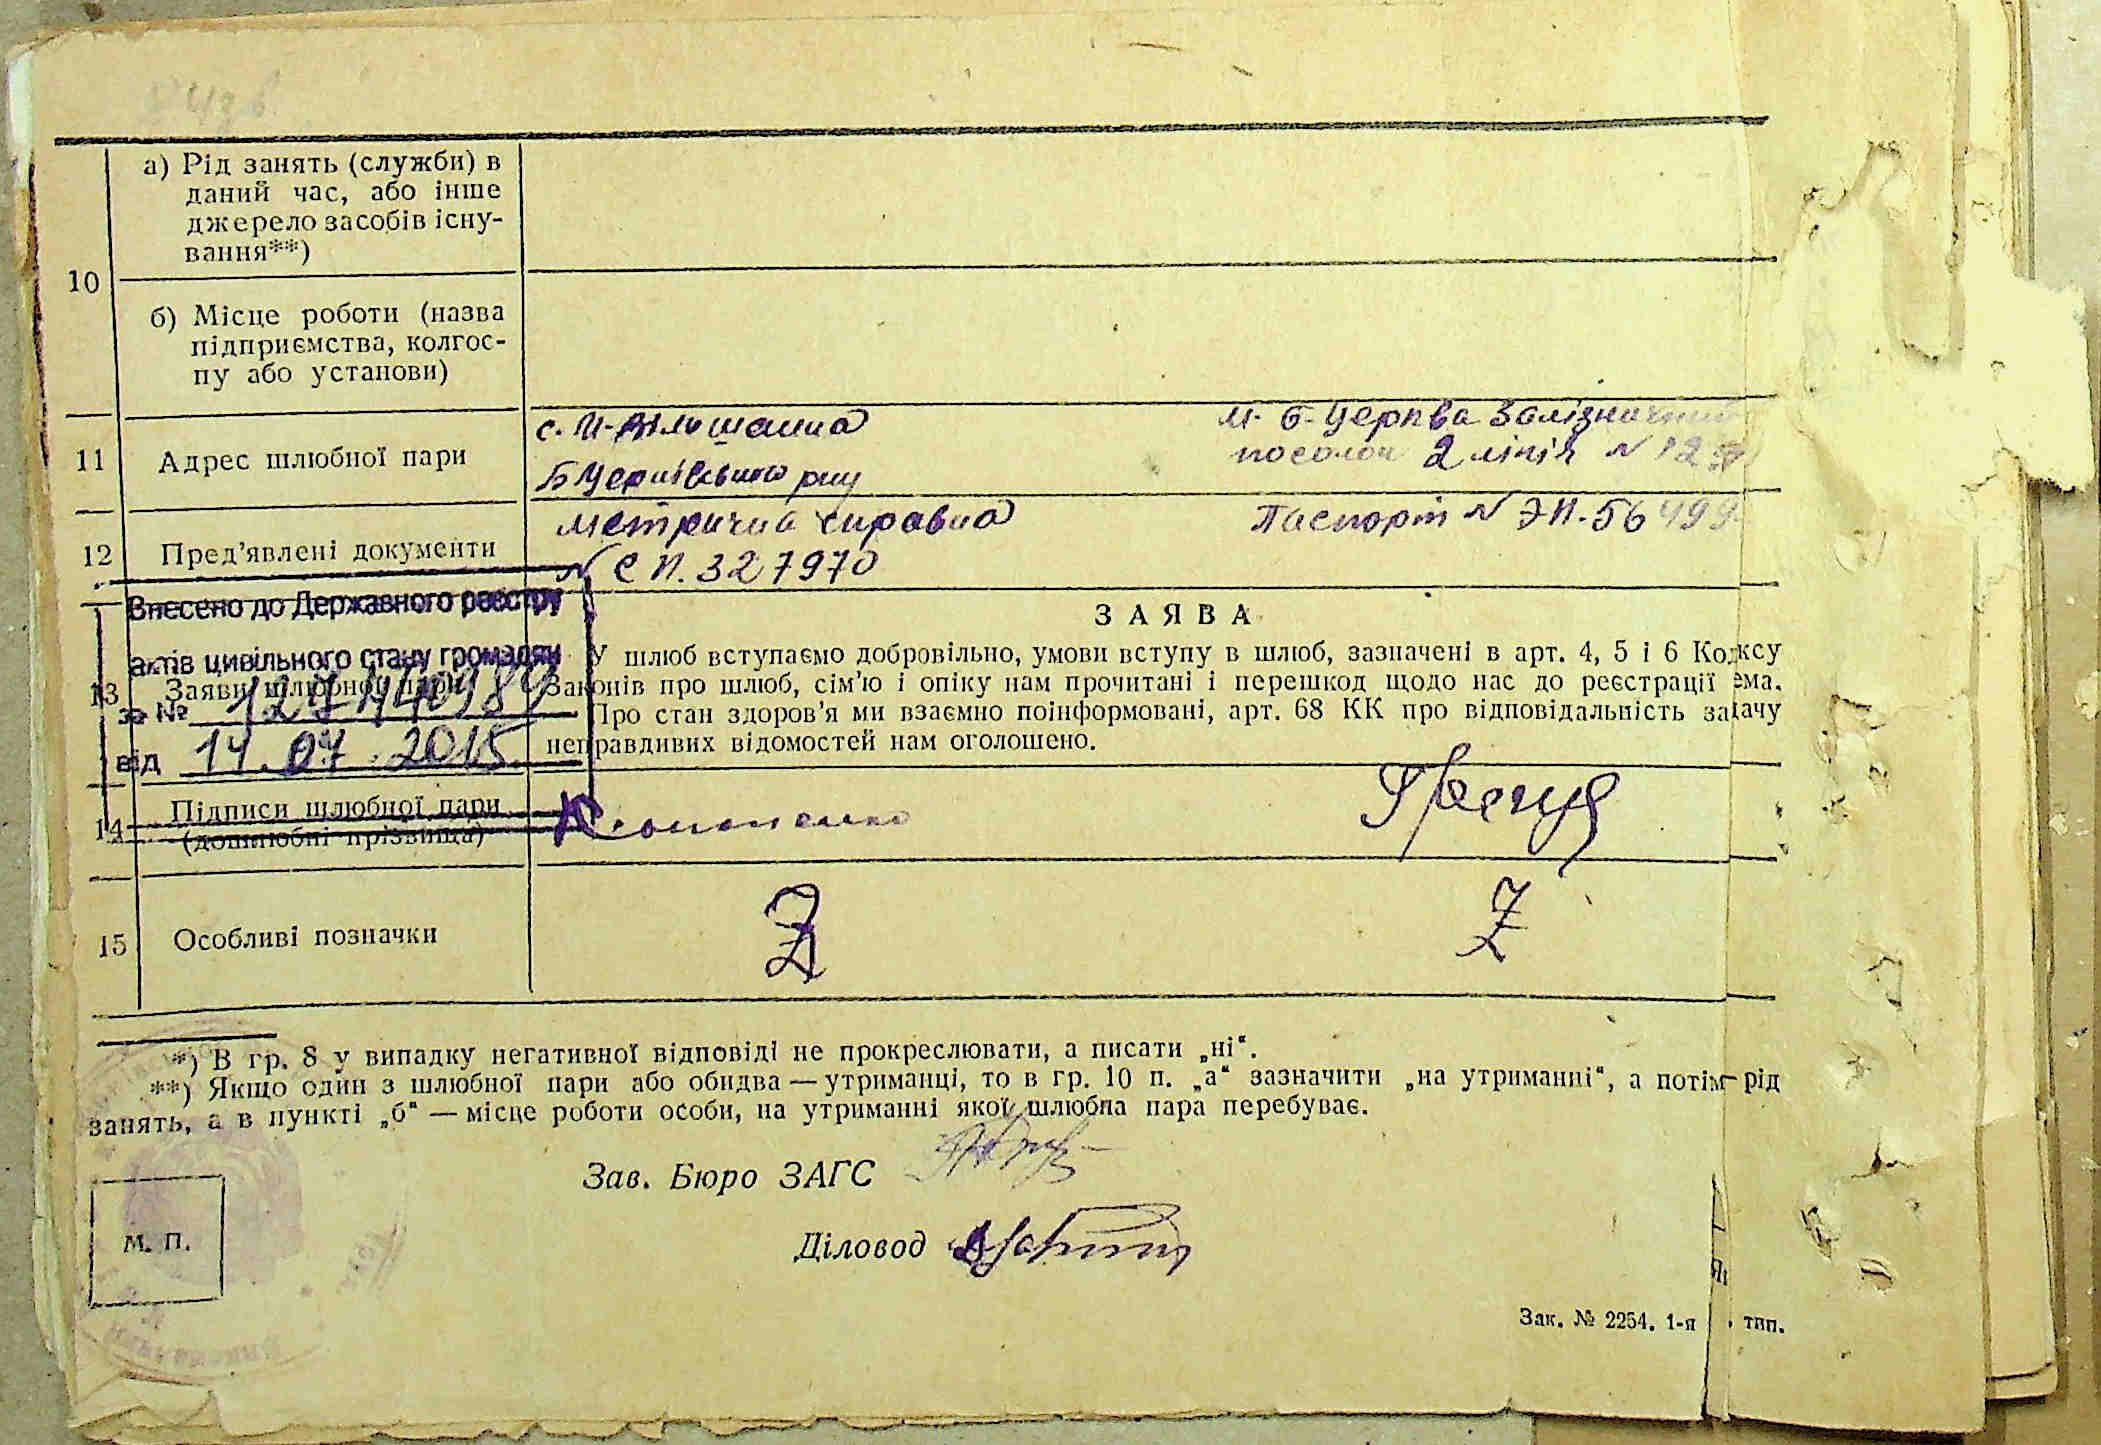 10
а) Рід занять (служби) в
даний час, або інше
джерело засобів існу-
вання**)
б) Місце роботи (назва
підприємства, колгос-
пу або установи)
11 Адрес шлюбної пари
м. Б-Церква Залізничний
посолок 2 лінія №
12 Пред’явлені документи
Метрична справка
№ СП. 327970
Паспорт № ЭП-56499
Внесено до Державного реєстру
актів цивільного стану громадян
за №
від 14.07.2015
13 Заяви шлюбної пари
ЗАЯВА
У шлюб вступаємо добровільно, умови вступу в шлюб, зазначені в арт. 4, 5 і 6 Кодексу
Законів про шлюб, сім’ю і опіку нам прочитані і перешкод щодо нас до реєстрації ема.
Про стан здоров’я ми взаємно поінформовані, арт. 68 КК про відповідальність за дачу
неправдивих відомостей нам оголошено.
14 Підписи шлюбної пари
(дошлюбні прізвища)
15 Особливі позначки
Z Z
*) В гр. 8 у випадку негативної відповіді не прокреслювати, а писати „ні“.
**) Якщо один з шлюбної пари або обидва — утриманці, то в гр. 10 п. „а“ зазначити „на утриманні“, а потім рід
занять, а в пункті „б“ — місце роботи особи, на утриманні якої шлюбна пара перебуває.
Зав. Бюро ЗАГС
Діловод
М. П.
Зак. № 2254. 1-я тип.